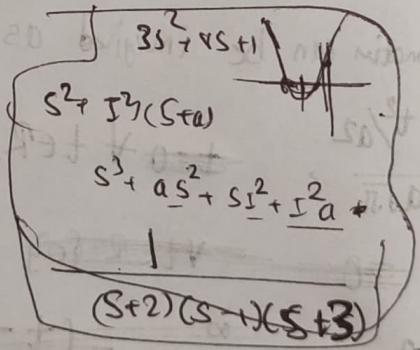 3s² + 8s + 1
s² + I²)(s+a)
s³ + as² + sI² + I²a
1
(s+2)(s-1)(s+3)